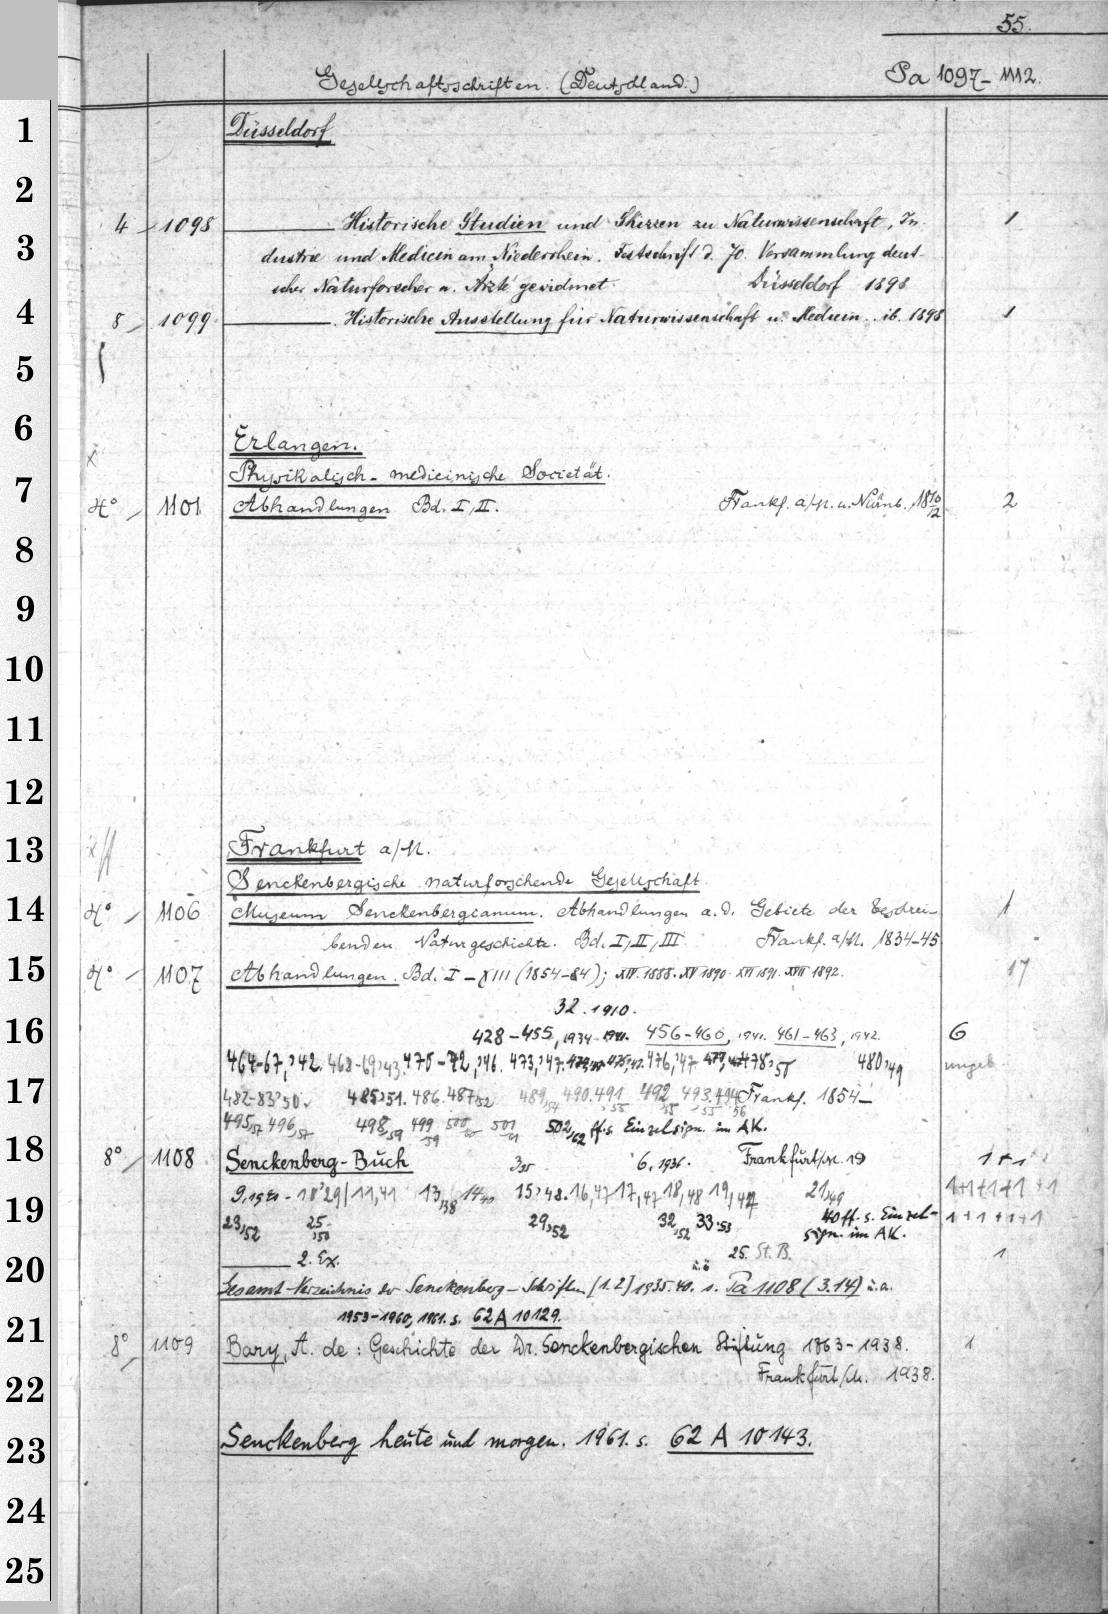 55.
Gesellschaftsschriften. (Deutschland.) Pa 1097-1112.
1
Düsseldorf
2
4 1098 Historische Studien und Skizzen zu Naturwissenschaft, In- 1
3
dustrie und Medicin am Niederrhein. Festschrift d. 70. Versammlung deut-
scher Naturforscher u. Ärzte gewidmet. Düsseldorf 1898
4
8 1099 Historische Ausstellung für Naturwissenschaft u. Medicin. ib. 1898 1
5
6
Erlangen.
Physikalisch-medicinische Societät.
7
4° 1101 Abhandlungen Bd. I, II. Frankf. a/M. u. Nürnb. 1810/12 2
8
9
10
11
12
13
Frankfurt a/M.
Senckenbergische naturforschende Gesellschaft.
14
4° 1106 Museum Senckenbergianum. Abhandlungen a.d. Gebiete der beschrei- 1
benden Naturgeschichte. Bd. I, II, III Frankf. a/M. 1834-45
15
4° 1107 Abhandlungen. Bd. I-XIII (1854-84); XIV. 1888. XV 1890. XVI 1891. XVII 1892. 17
32. 1910.
16
428-455, 1934-1941. 456-460, 1941. 461-463, 1942. 6
464-67,'42. 468-69,'43. 470-72,'46. 473,'47. 476,'47 478,'55 480,'49 ungeb.
17
482-83'50. 485,51. 486. 487,52 489,54 490. 491,55 492,55 493,55 494,56 Frankf. 1854-
495,57 496,57 498,59 499,59 500 501 502,62 ff. s. Einzelsign. im AK.
18
8° 1108 Senckenberg-Buch 3,35 6, 1936. Frankfurt/M. 19 1+1
9, 11,41 13,38 14,41 15,48. 16,47 17,47 18,48 19,47 21,49 1+1+1+1+1
19
40 ff. s. Einzel-
23,52 25,50 29,52 32,52 33,53 sign. im AK. 1+1+1+1
2. Ex. 25. St. B. 1
20
Gesamt-Verzeichnis der Senckenberg-Schriften [1.2] 1935.40. s. Pa 1108 (3.14) u.a.
1953-1960, 1961. s. 62 A 10129.
21
8° 1109 Bary, A. de: Geschichte der Dr. Senckenbergischen Stiftung 1863-1938. 1
22
Frankfurt/M. 1938.
23
Senckenberg heute und morgen. 1961. s. 62 A 10143.
24
25